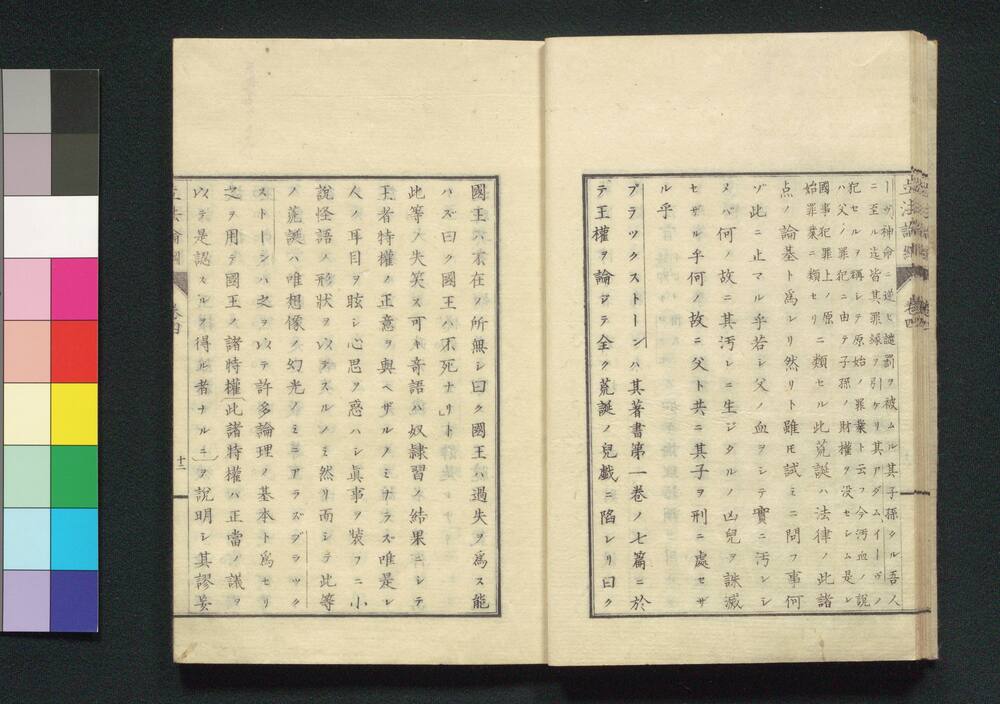 ーヴ神命ニ逆ヒ譴罰ヲ被ムル其子孫タル吾人
ニ至ル迄皆其罪縁ヲ引ケリ其アダム、イーヴノ
犯セルヲ稱シテ原始ノ罪業ト云フ今汚血ノ説
ハ父ノ罪犯ニ由テ子孫ノ財權ヲ没セシム是レ
國事犯罪上ノ原
始罪業ニ類セリ
ニ類セル此荒誕ハ法律ノ此諸
点ノ論基ト爲レリ然リト雖モ試ミニ問フ事何
ゾ此ニ止マル乎若シ父ノ血ヲシテ實ニ汚レシ
メバ何ノ故ニ其汚レニ生ジタルノ凶兒ヲ誅滅
セザル乎何ノ故ニ父ト共ニ其子ヲ刑ニ處セザ
ル乎
ブラックストーンハ其著書第一卷ノ七篇ニ於
テ王權ヲ論ジテ全ク荒誕ノ兒戯ニ陷レリ曰ク
國王ハ不在ノ所無シ曰ク國王ハ過失ヲ爲ス能
ハズ曰ク國王ハ不死ナリト
此等ノ失笑ス可キ奇語ハ奴隷習ノ結果ニシテ
王者特權ノ正意ヲ與ヘザルノミナラズ唯是レ
人ノ耳目ヲ眩シ心思ヲ惑ハシ眞事ヲ裝フニ小
説怪語ノ形状ヲ以テスルノミ然リ而シテ此等
ノ荒誕ハ唯想像ノ幻光ノミニアラズブラック
ストーンハ之ヲ以テ許多論理ノ基本ト爲セリ
之ヲ用テ國王ノ諸特權(此諸特權ハ正當ノ議ヲ
以テ是認スルヲ得ル者ナルニ)ヲ説明シ其謬妄
卷四
十二